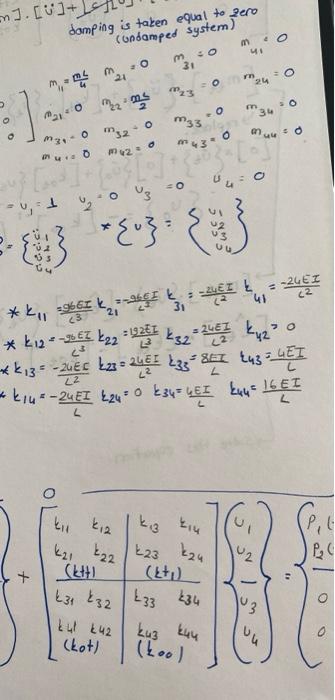 m]. [ü] +
damping is taken equal to zero
(undamped system)
m11 = mL/2 m21 = 0 m31 = 0 m41 = 0
m21 = 0 m22 = mL/2 m23 = 0 m24 = 0
m31 = 0 m32 = 0 m33 = 0 m34 = 0
m41 = 0 m42 = 0 m43 = 0 m44 = 0
= u1 = 1 u2 = 0 u3 = 0 u4 = 0
= {ü1 ü2 ü3 ü4} * {u} = {u1 u2 u3 u4}
* k11 = 96EI/L³ k21 = -96EI/L³ k31 = -24EI/L² k41 = -24EI/L²
* k12 = -96EI/L³ k22 = 192EI/L³ k32 = 24EI/L² k42 = 0
* k13 = -24EI/L² k23 = 24EI/L² k33 = 8EI/L k43 = 4EI/L
* k14 = -24EI/L² k24 = 0 k34 = 4EI/L k44 = 16EI/L
0
k11 k12 k13 k14 u1 P1(t
k21 k22 k23 k24 u2 P2(
(ktt) (kt1)
+ =
k31 k32 k33 k34 u3 0
k41 k42 k43 k44 u4 0
(kot) (koo)